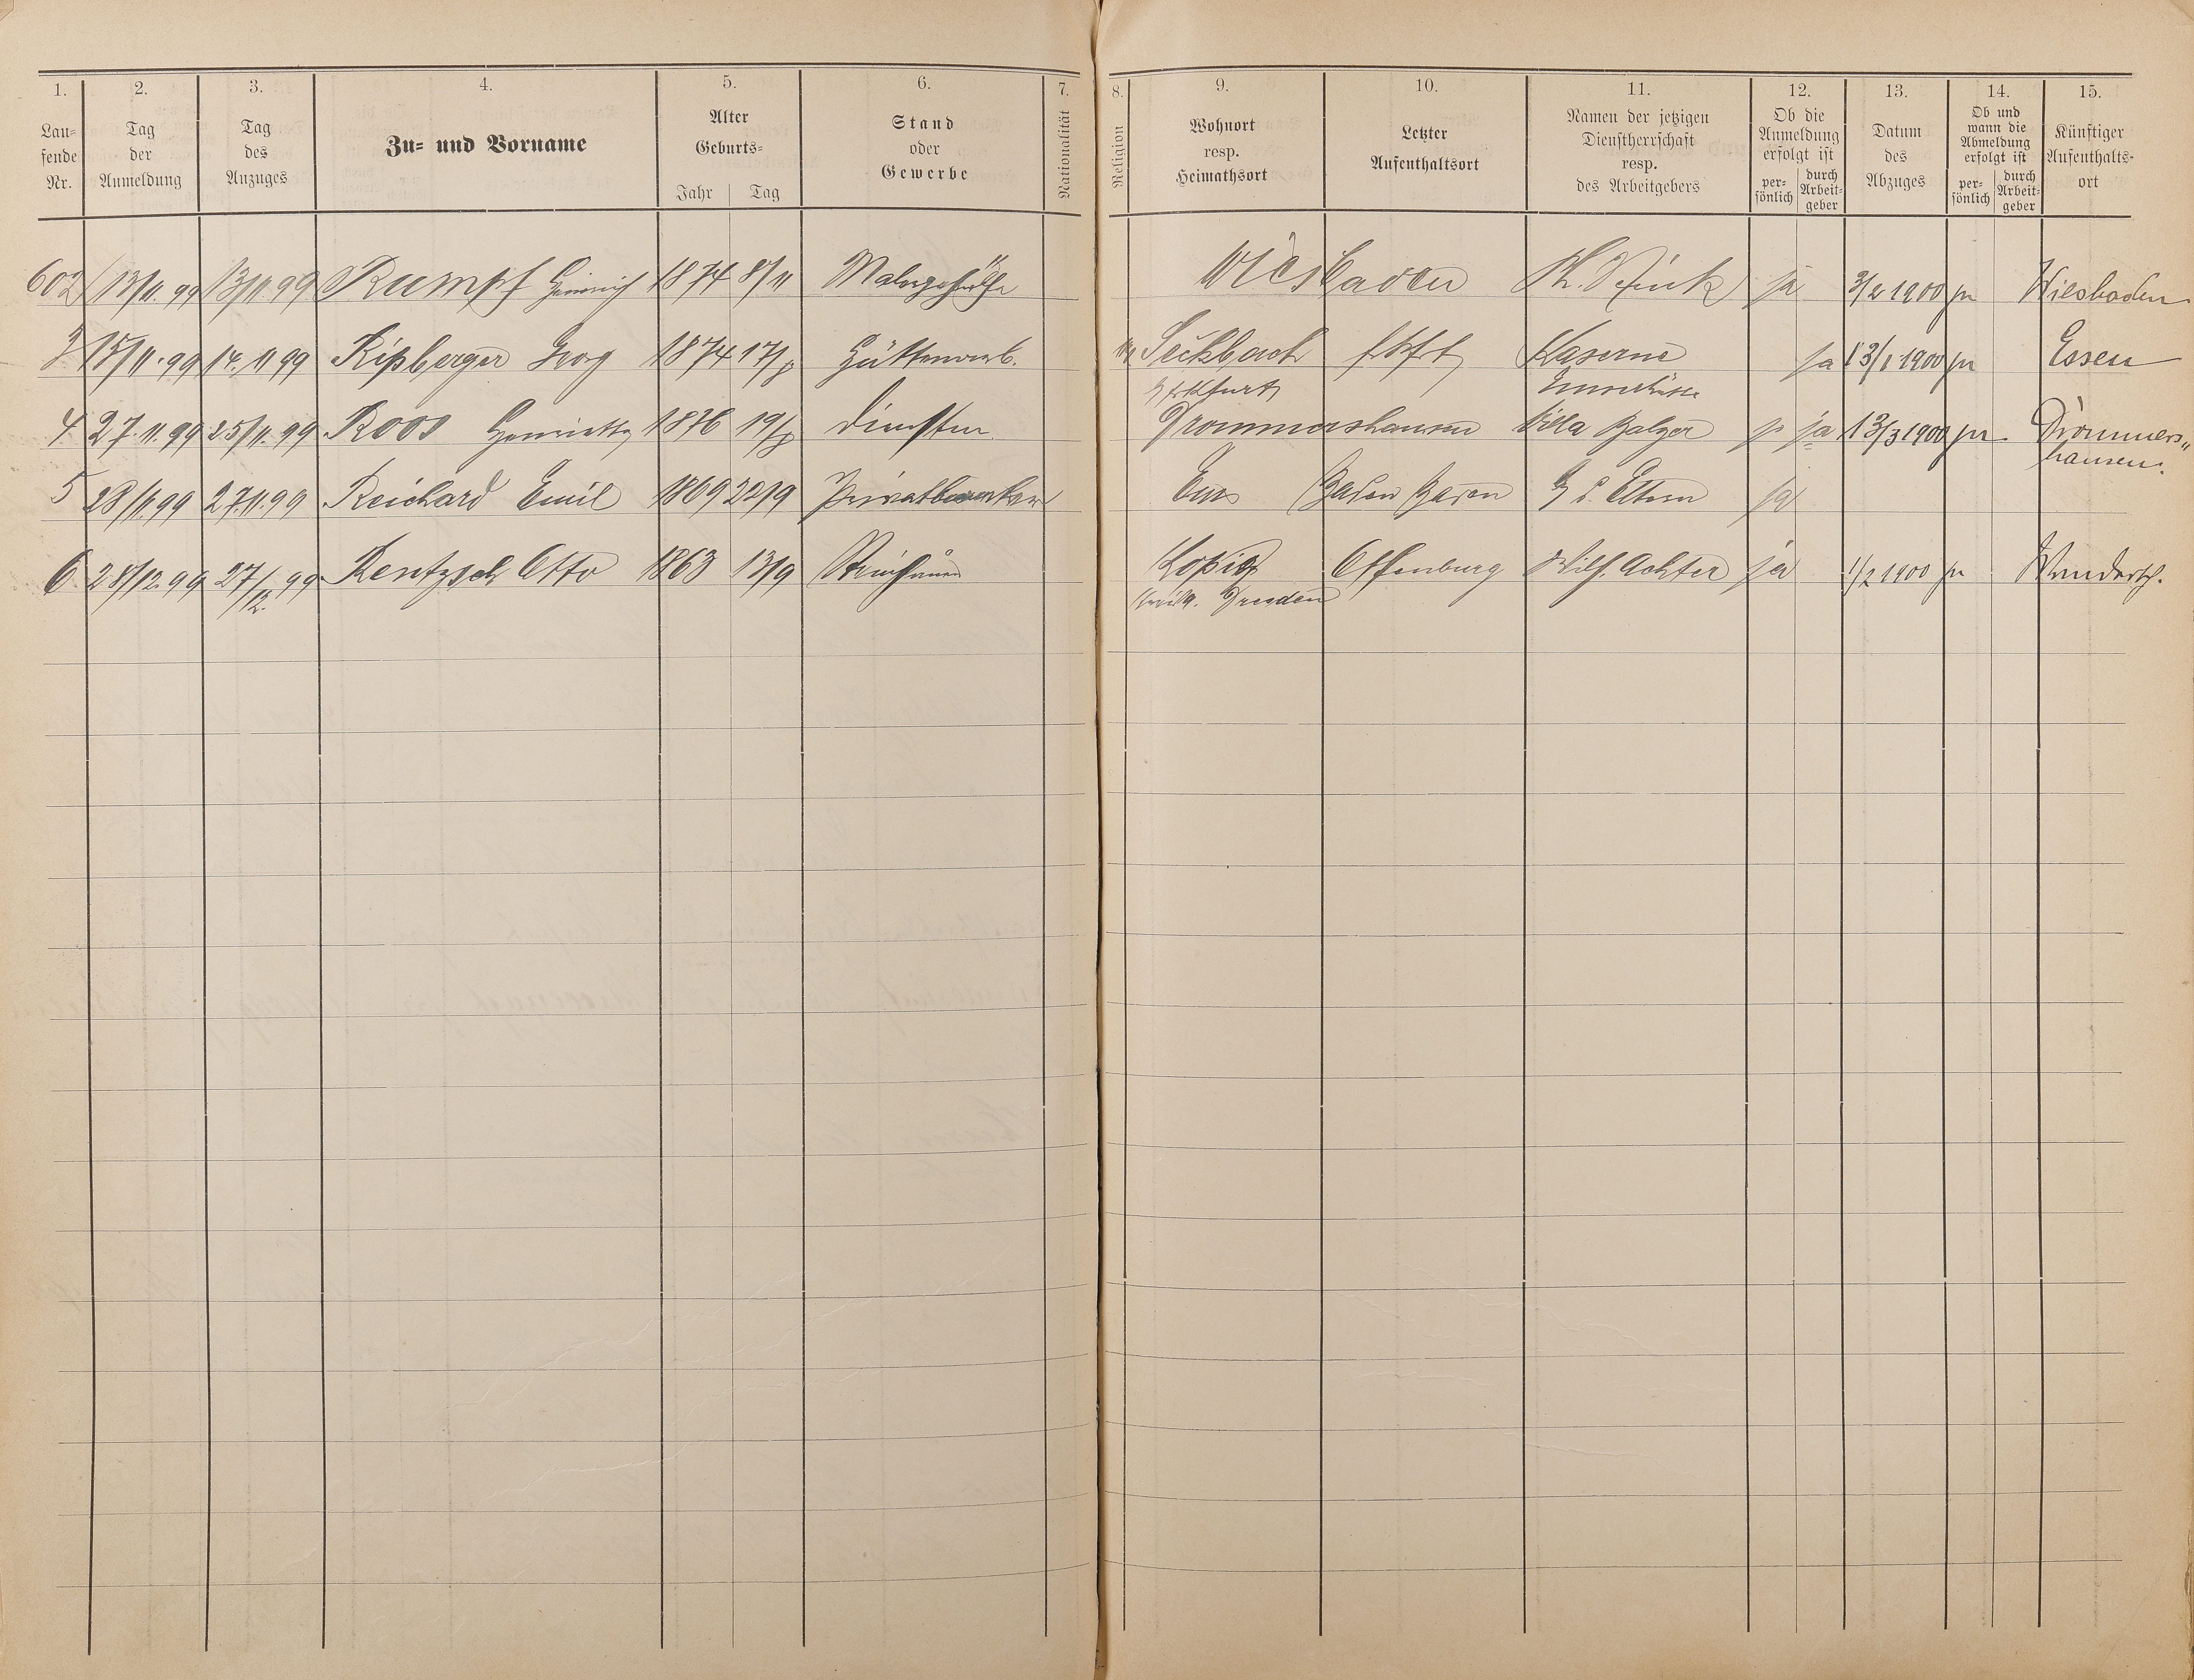 1. 2. 3. 4. 5. 6. 7. 8. 9. 10. 11. 12. 13. 14. 15.
Lau-
fende
Nr.
Tag
der
Anmeldung
Tag
des
Anzuges
Zu- und Vorname
Alter
Geburts-
Jahr Tag
Stand
oder
Gewerbe
Nationalität
Religion
Wohnort
resp.
Heimathsort
Letzter
Aufenthaltsort
Namen der jetzigen
Dienstherrschaft
resp.
des Arbeitgebers
Ob die
Anmeldung
erfolgt ist
per-
sönlich
durch
Arbeit-
geber
Datum
des
Abzuges
Ob und
wann die
Abmeldung
erfolgt ist
per-
sönlich
durch
Arbeit-
geber
Künftiger
Aufenthalts-
ort
602 13/11. 99 13/11 99 Rumpf Heinrich 1874 8/11 Malergehülfe Wiesbaden ja 3/2 1900 pr Wiesbaden
3 15/11. 99 14. 11 99 Ripberger Georg 1874 Hüttenarb. Seckbach frkfrt Kaserne ja 13/1 1900 pr Essen
b/ frkfurt
4 27. 11. 99 25/11. 99 Roos Henriette 1876 Dienstm. Drommershausen Villa Balzer ja 13/3 1900 pr Drommers-
hausen.
5 28/11 99 27. 11. 99 Reichard Emil 1869 22/9 Ems Baden Baden b/ d. Eltern ja
6 28/12. 99 27/12. 99 Rentzsch Otto 1863 13/9 Steinhauer Offenburg Wilh. Achter ja 1/2 1900 pr Wandersch.
Dresden